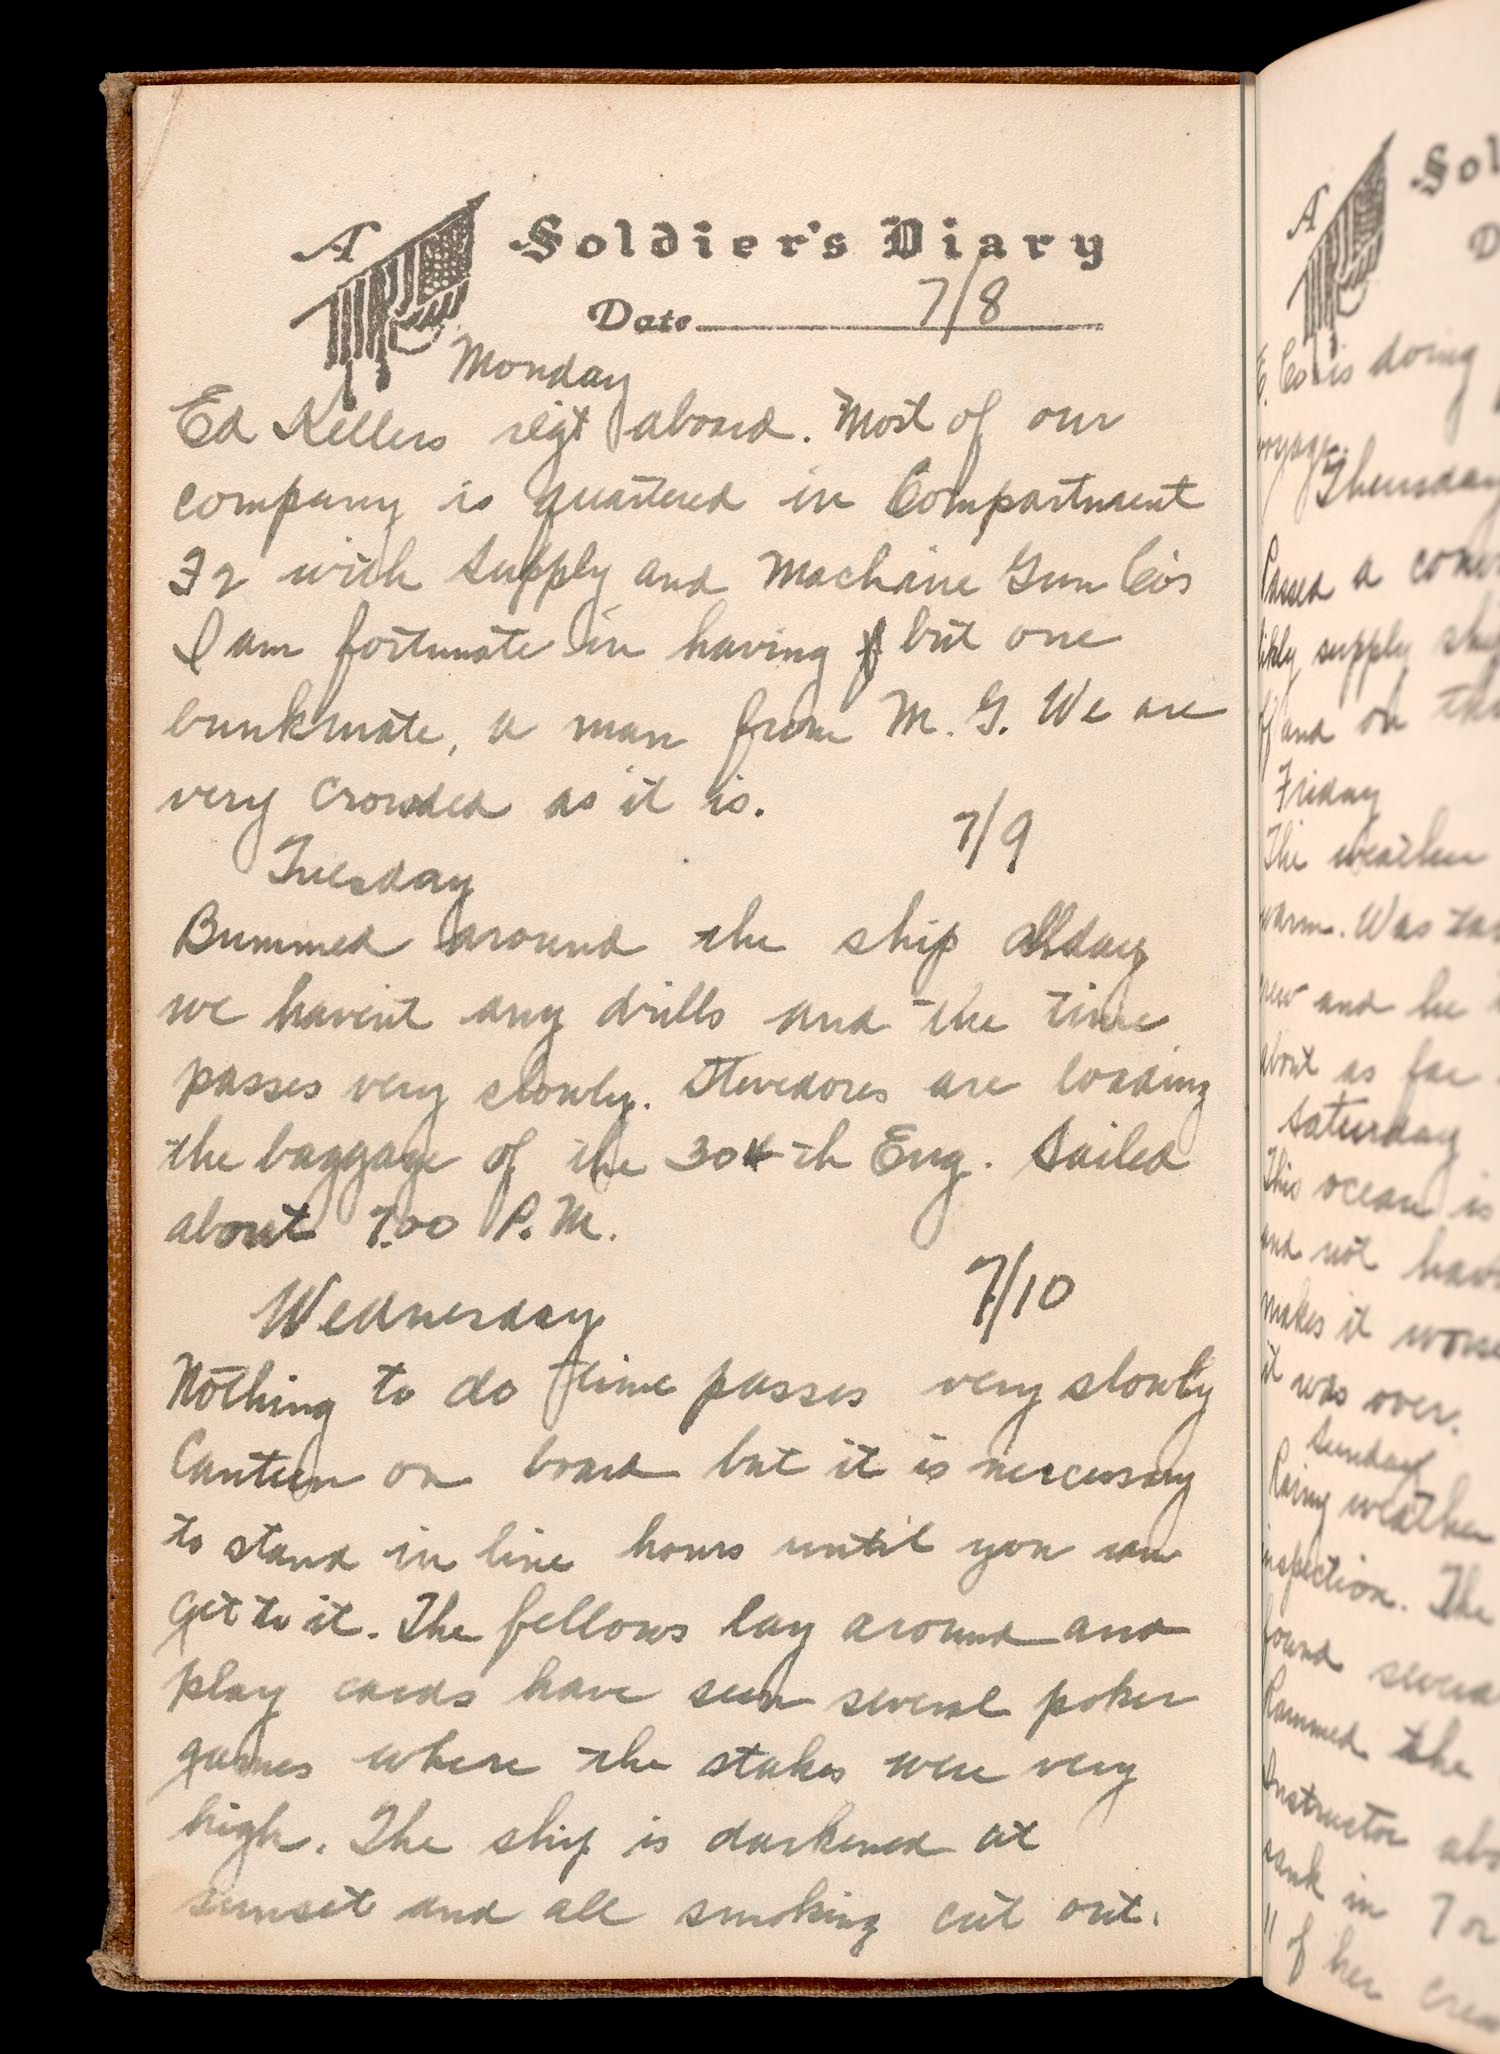 A Soldier's Diary
Date 7/8
Monday
Ed Kellers regt aboard. Most of our
company is quartered in Compartment
F2 with Supply and Machine Gun Co's
I am fortunate in having but one
bunkmate, a man from M. G. We are
very crowded as it is.
7/9
Tuesday
Bummed around the ship all day
we havent any drills and the time
passes very slowly. Stevedores are loading
the baggage of the 304th Eng. Sailed
about 7.00 P.M.
7/10
Wednesday
Nothing to do time passes very slowly
Canteen on board but it is neccessary
to stand in line hours until you can
get to it. The fellows lay around and
play cards have seen several poker
games where the stakes were very
high. The ship is darkened at
sunset and all smoking cut out.
A Sol
D
E. Co. is doing
voyage.
Thursday
Passed a conv
likly supply ship
off and on
Friday
The weather
warm. Was
crew and he
about as far
Saturday
This ocean is
and not havi
makes it worse
it was over.
Sunday
Rainy weather
inspection. The
found severa
Rammed the
Instructor abo
sank in 7 or
11 of her crew